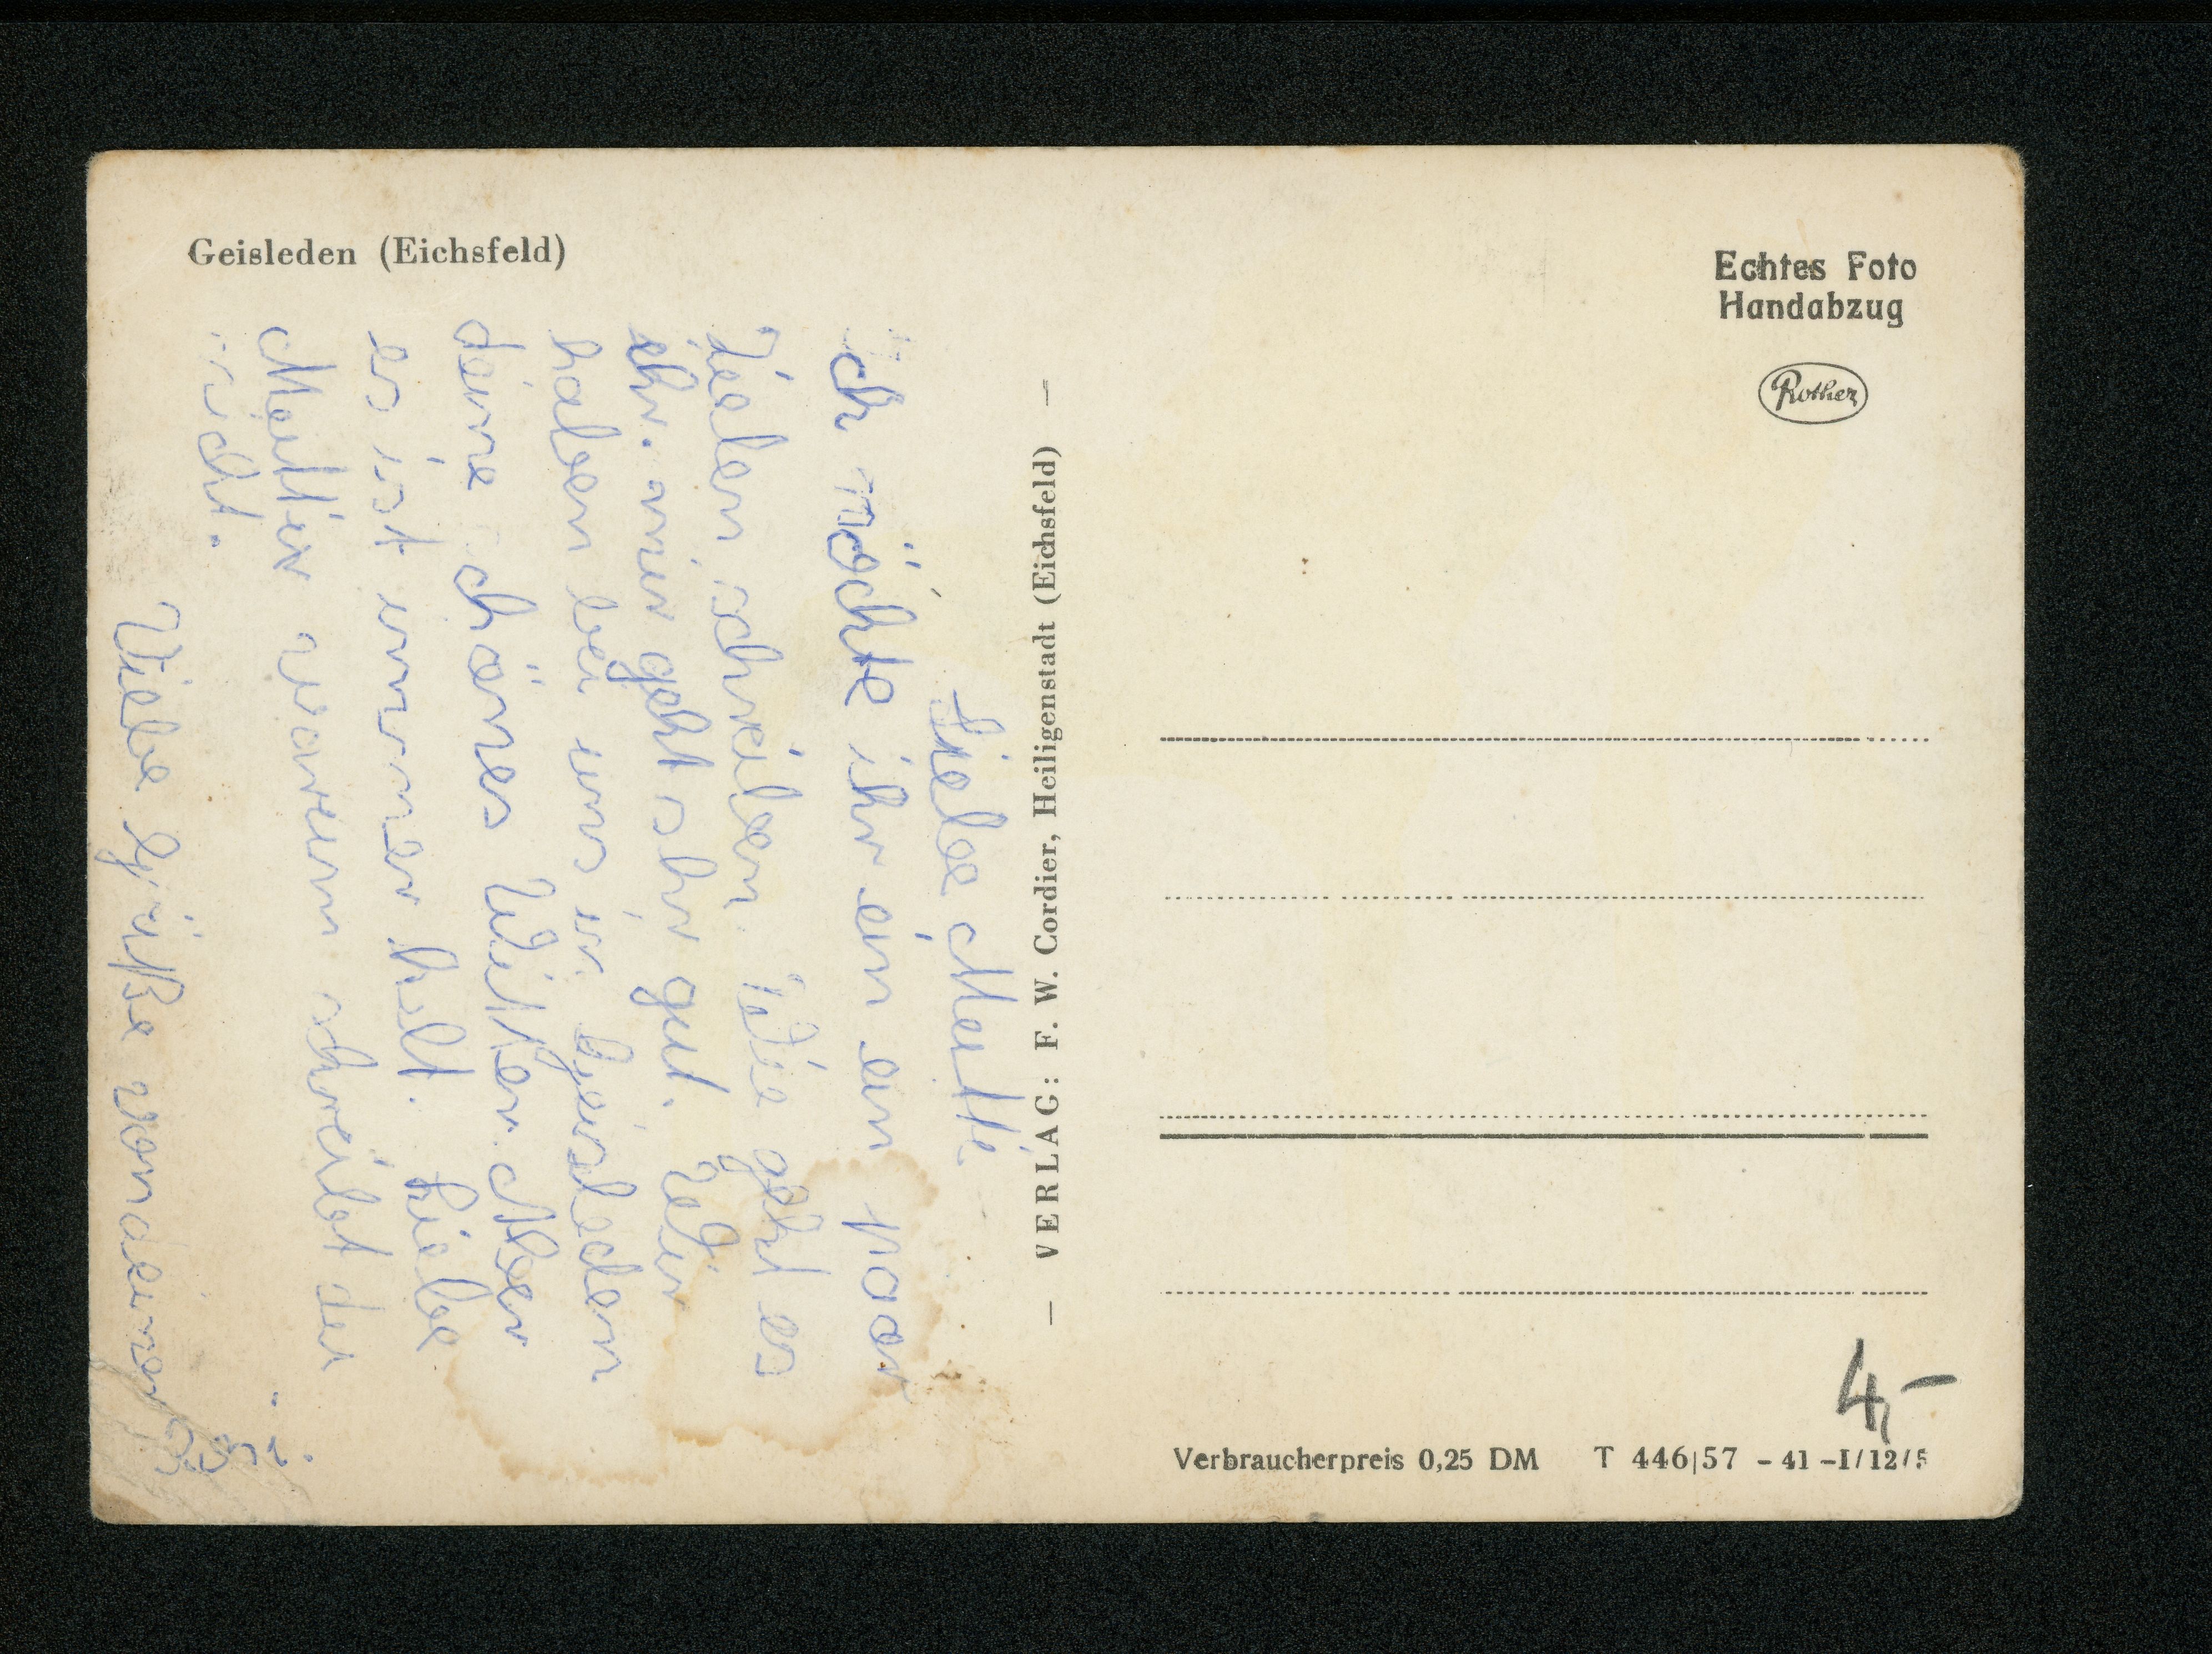 Geisleden (Eichsfeld)
Liebe Mutti.
ich möchte ihr ein en paar
Zielen schreiben. Wie geht es
ihr. mir geht sehr gut. Wir
haben bei uns in Geisleden
deine schönes Witter. Aber
es ist immer kalt. Liebe
Mutter warum schreibst du
nicht.
Viele Grüße von deiner
– VERLAG: F. W. Cordier, Heiligenstadt (Eichsfeld) –
Echtes Foto
Handabzug
Rother
4,–
Verbraucherpreis 0,25 DM T 446|57 – 41 – I/12/5